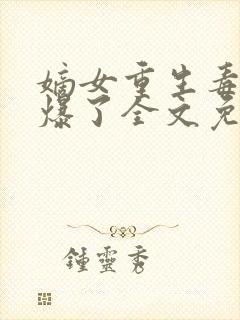 嫡女重生毒
爆了全文免
鍾靈秀